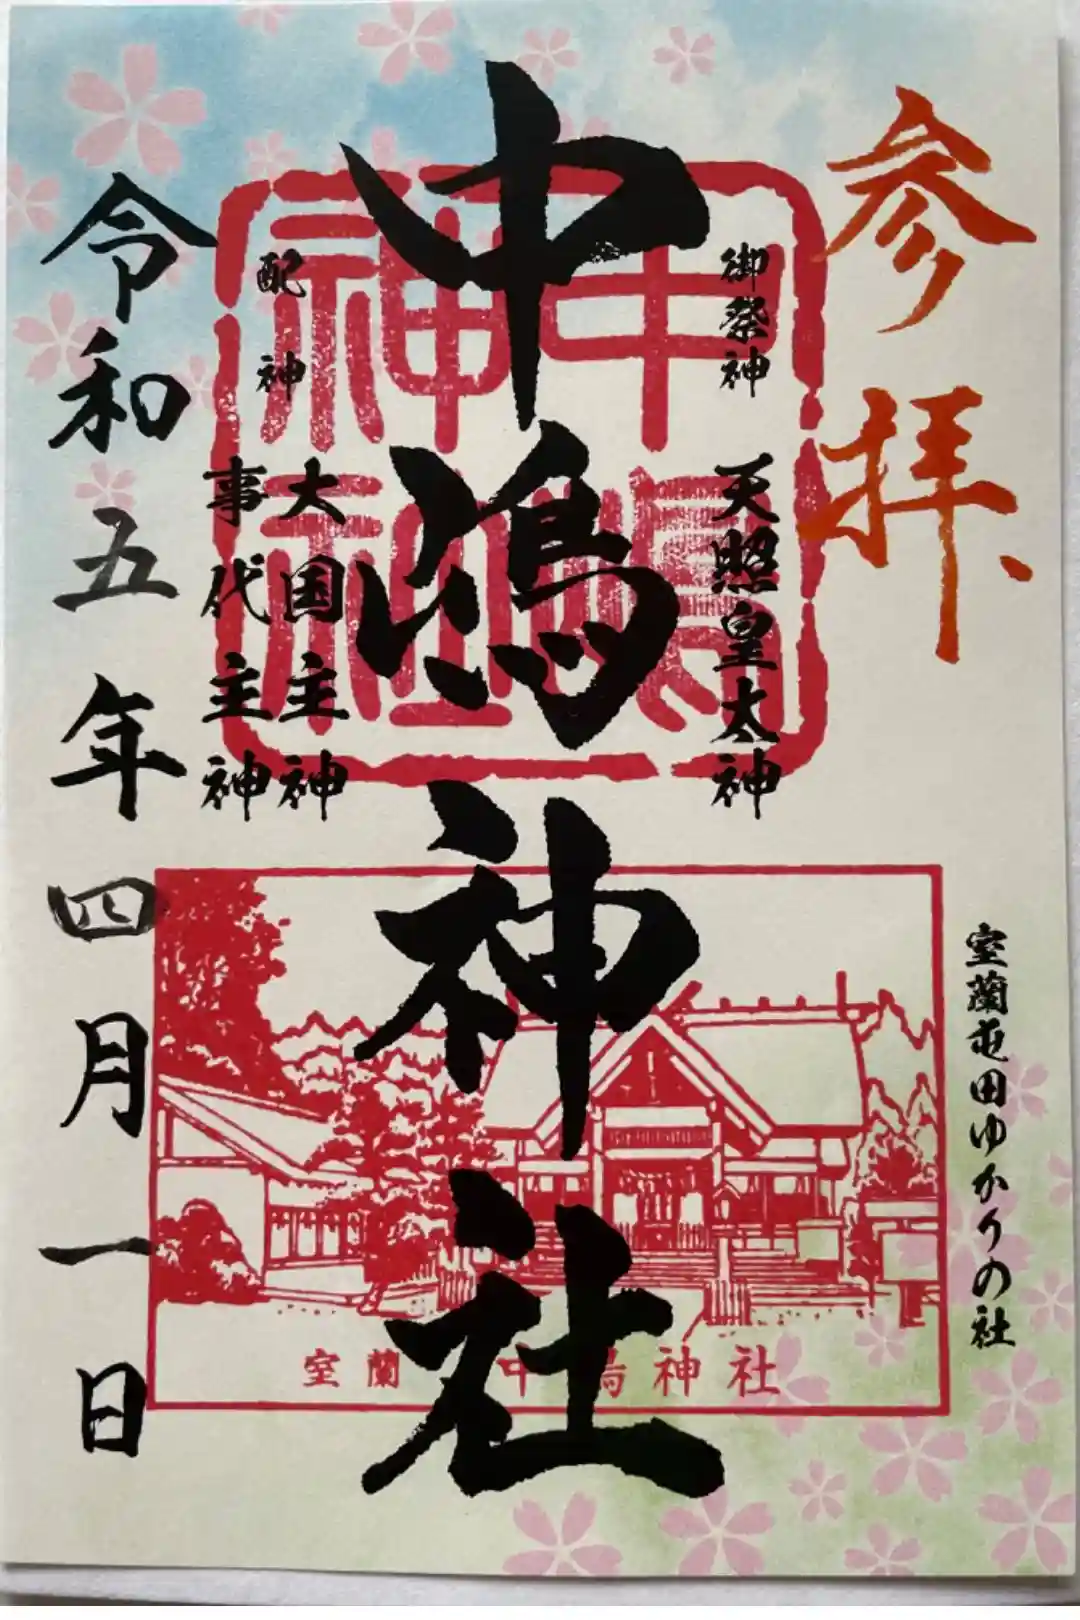 参拝
室蘭屯田ゆかりの社
御祭神
天照皇大神
中嶋神社
中嶋神社
配神
大国主神
事代主神
令和五年四月一日
室蘭 中嶋神社